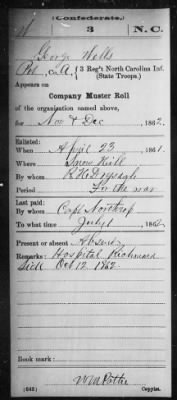 (Confederate.)
W 3 N.C.
Geo. P. Wells
Pvt, Co. A, 3 Reg't North Carolina Inf.
(State Troops.)
Appears on
Company Muster Roll
of the organization named above,
for Nov & Dec, 1862.
Enlisted:
When April 23, 1861.
Where Snow Hill
By whom
Period For the war
Last paid:
By whom Capt Northrop
To what time July 1, 1862.
Present or absent Absent
Remarks: Hospital Richmond
Oct 12 1862.
Book mark:
(642) Copyist.